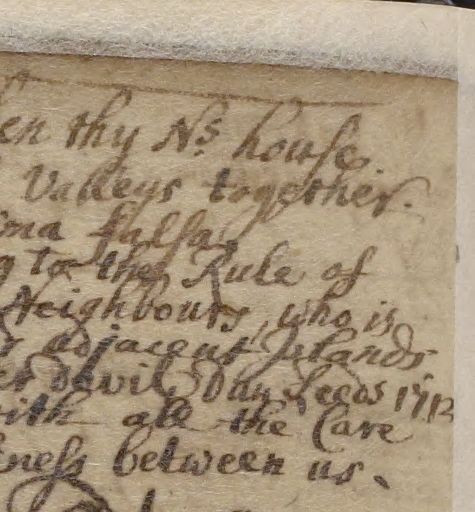 en thy Ns. house
Valleys together.
ma falsa
g to the Rule of
Neighbours, who is
s adjacent Islands
er Devil, Dan Leeds 1713
ith all the Care
ness between us.